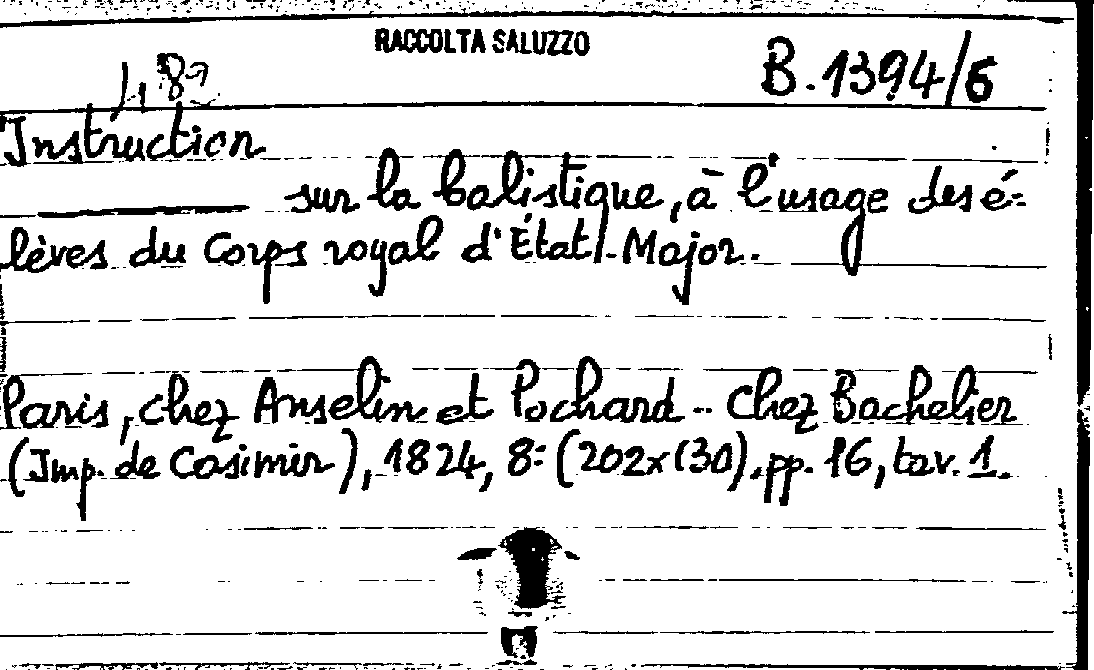 RACCOLTA SALUZZO
B.1394/6
Instruction
sur la balistique, à l'usage des é=
lèves du Corps royal d'État-Major.
Paris, chez Anselin et Pochard - Chez Bachelier
(Imp. de Casimir), 1824, 8° (202x130), pp. 16, tav. 1.